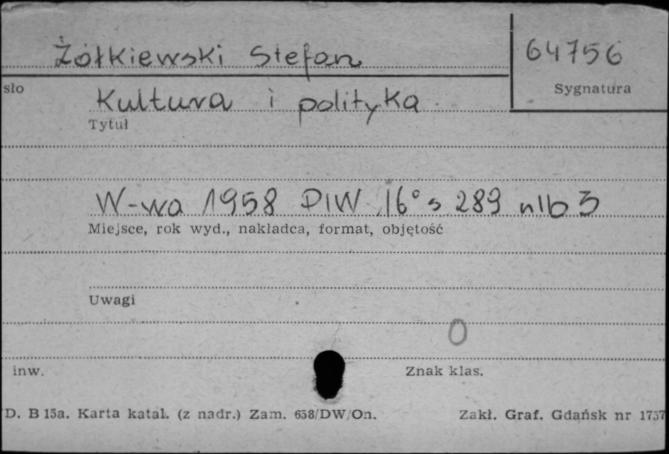 Żółkiewski Stefan
64756
sło
Sygnatura
Kultura i polityka
Tytuł
W-wa 1958 PIW 16° s 289 nlb 3
Miejsce, rok wyd., nakładca, format, objętość
Uwagi
0
inw.
Znak klas.
D. B 15a. Karta katal. (z nadr.) Zam. 658/DW/On.
Zakł. Graf. Gdańsk nr 1757